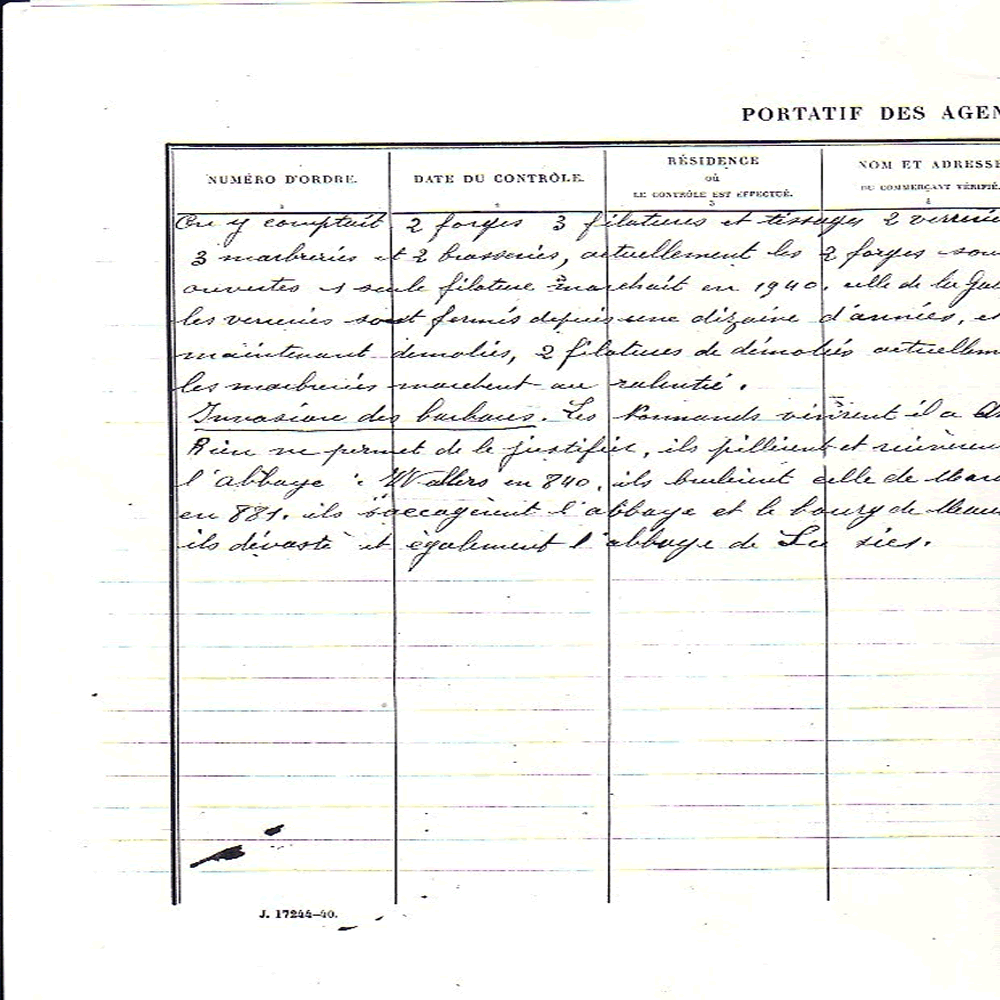 PORTATIF DES AGEN
NUMÉRO D'ORDRE.
DATE DU CONTRÔLE.
RÉSIDENCE
où
LE CONTRÔLE EST EFFECTUÉ.
3
NOM ET ADRESSE
DU COMMERÇANT VÉRIFIÉ.
4
On y comptait 2 forges 3 filatures et tissages 2 verreries
3 marbreries et 2 brasseries, actuellement les 2 forges sont
ouvertes 1 seule filature marchait en 1940. celle de la
les verreries sont fermés depuis une dizaine d'années, et
maintenant démolies, 2 filatures de démoliés actuellem
les marbreries marchent au ralentié.
Invasions des barbares. Les Normands vinrent il a
Rien ne permet de le justifier, ils pillèrent et
l'abbaye Wallers en 840. ils brulèrent celle de
en 881. ils saccagèrent l'abbaye et le bourg de
ils dévasté et également l'abbaye de Liessies.
J. 17244-40.